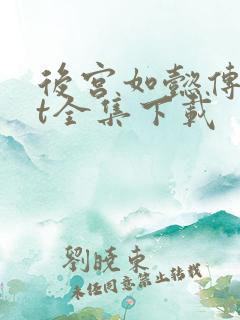 後宮如懿傳
t全集下載
劉曉東
未經同意禁止轉載